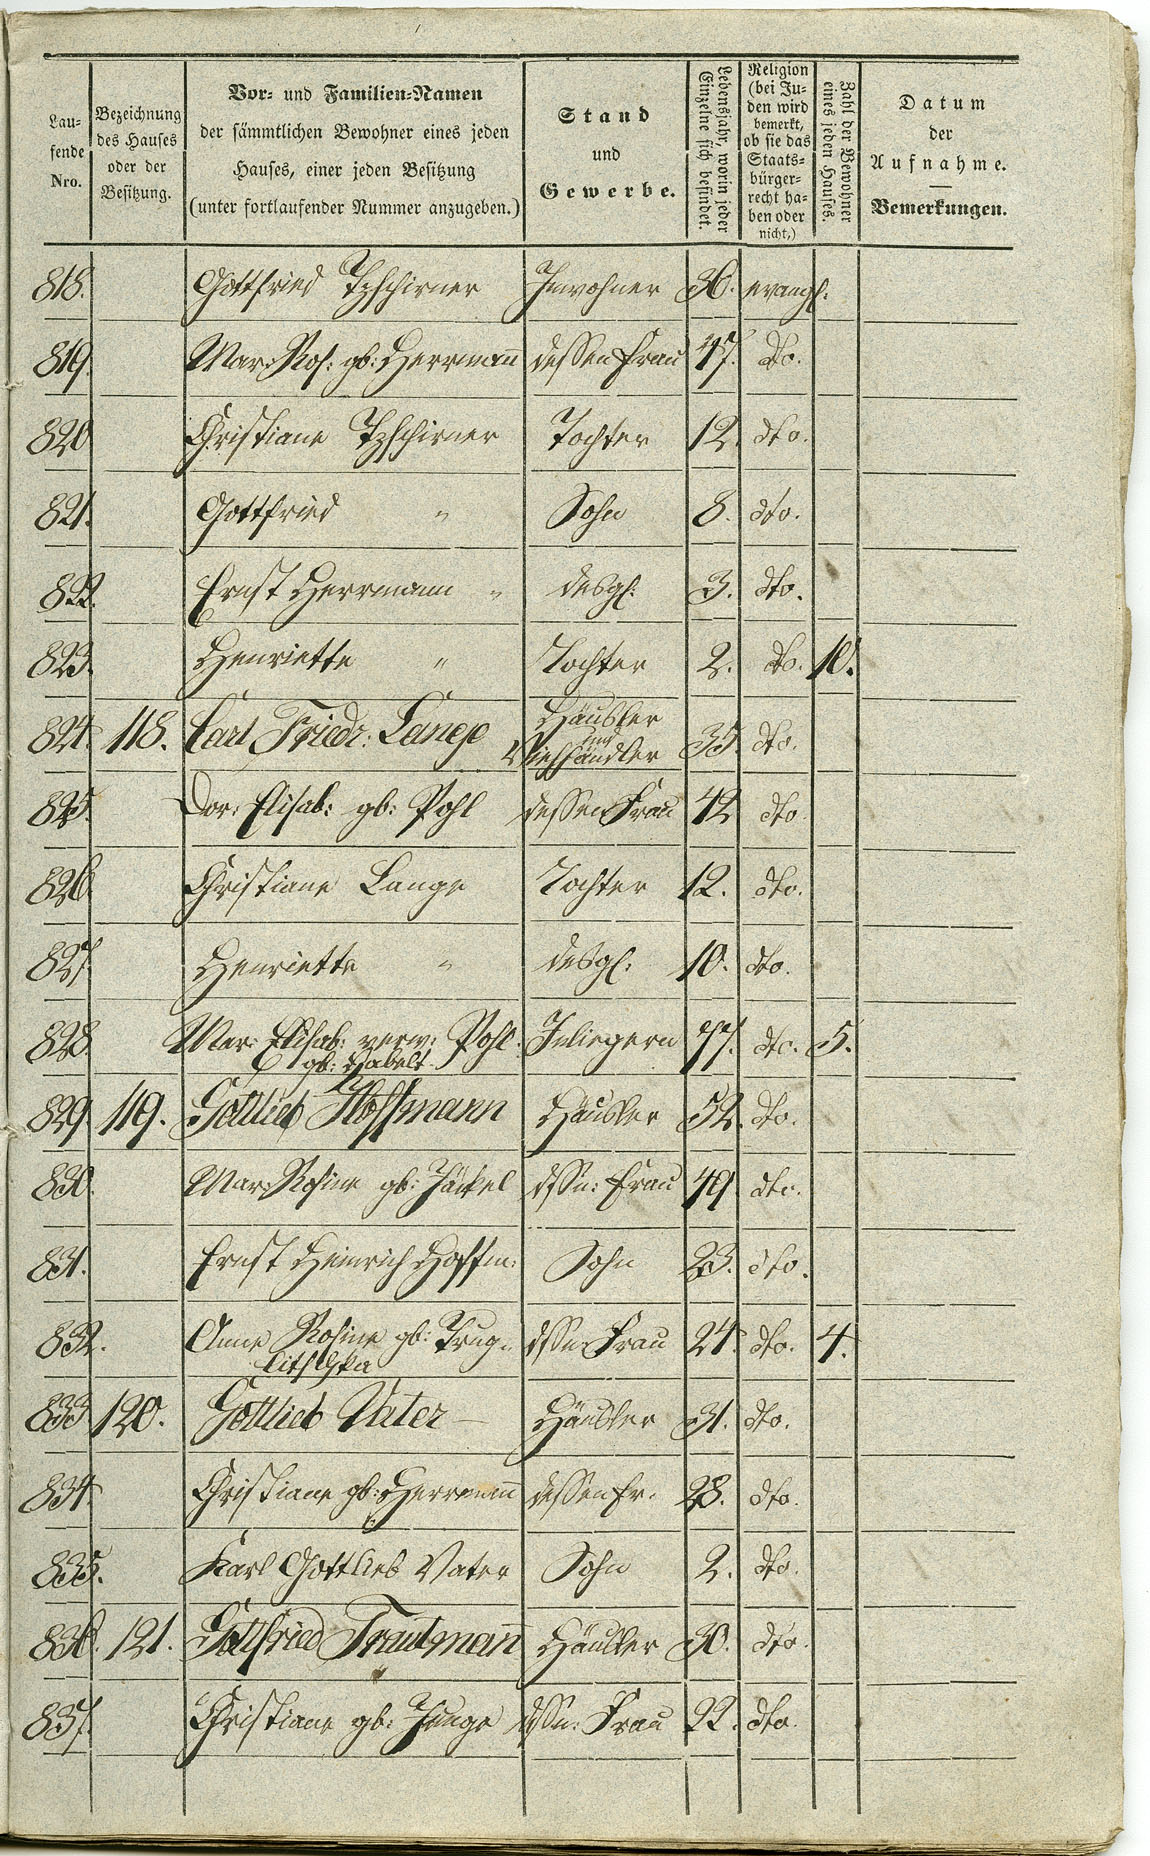 Lau-
fende
Nro.
Bezeichnung
des Hauses
oder der
Besitzung.
Vor- und Familien-Namen
der sämmtlichen Bewohner eines jeden
Hauses, einer jeden Besitzung
(unter fortlaufender Nummer anzugeben.)
Stand
und
Gewerbe.
Lebensjahr, worin jeder
Einzelne sich befindet.
Religion
(bei Ju-
den wird
bemerkt,
ob sie das
Staats-
bürger-
recht ha-
ben oder
nicht,)
Zahl der Bewohner
eines jeden Hauses.
Datum
der
Aufnahme.
Bemerkungen.
818. Gottfried Tzschirner Inwohner 36. evangl.
819. Mar: Ros: gb: Herrmann dessen Frau 47. dto.
820 Christiane Tzschirner Tochter 12. dto.
821. Gottfried " Sohn 8. dto.
822. Ernst Herrmann " desgl: 3. dto.
823. Henriette " Tochter 2. dto. 10.
824. 118. Carl Friedr: Lange Häusler
und
Viehhändler 35 dto.
825. Dor: Elisab: gb: Pohl dessen Frau 42 dto
826 Christiane Lange Tochter 12. dto.
827. Henriette " desgl: 10. dto.
828. Mar: Elisab: verw: Pohl Inliegern 77. dto. 5.
gb:
829. 119. Gottlieb Hoffmann Häusler 52. dto.
830. Mar: Rosine gb: Jäckel dssn: Frau 49 dto.
831. Ernst Heinrich Hoffm: Sohn 23. dto.
832. Anne Rosine gb: dssn: Frau 24. dto. 4.
833 120. Gottlieb Vater Häusler 31. dto.
834. Christiane gb: Herrmann dessen Fr. 28. dto.
835. Karl Gottlieb Vater Sohn 2. dto.
836. 121. Gottfried Trautmann Häusler 30. dto.
837. Christiane gb: Junge dssn: Frau 22. dto.